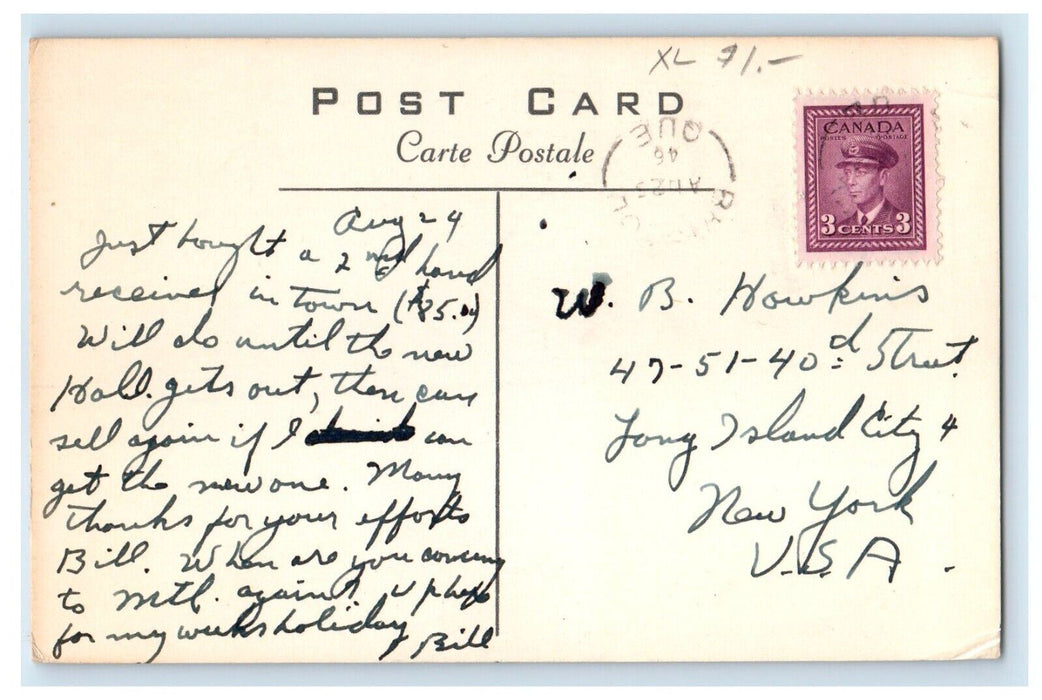 XL $1.—
POST CARD
Carte Postale
CANADA
POSTES POSTAGE
3 CENTS 3
QUE
46
AU 23
Aug 24
Just bought a 2nd hand
receiver in town ($85.00)
Will do until the new
Hall. gets out, then can
sell again if I can
get the new one. Many
thanks for your efforts
Bill. When are you coming
to Mtl. again? Up here
for my weeks holiday
Bill
W. B. Hawkins
47-51-40d Street
Long Island City 4
New York
U.S.A.